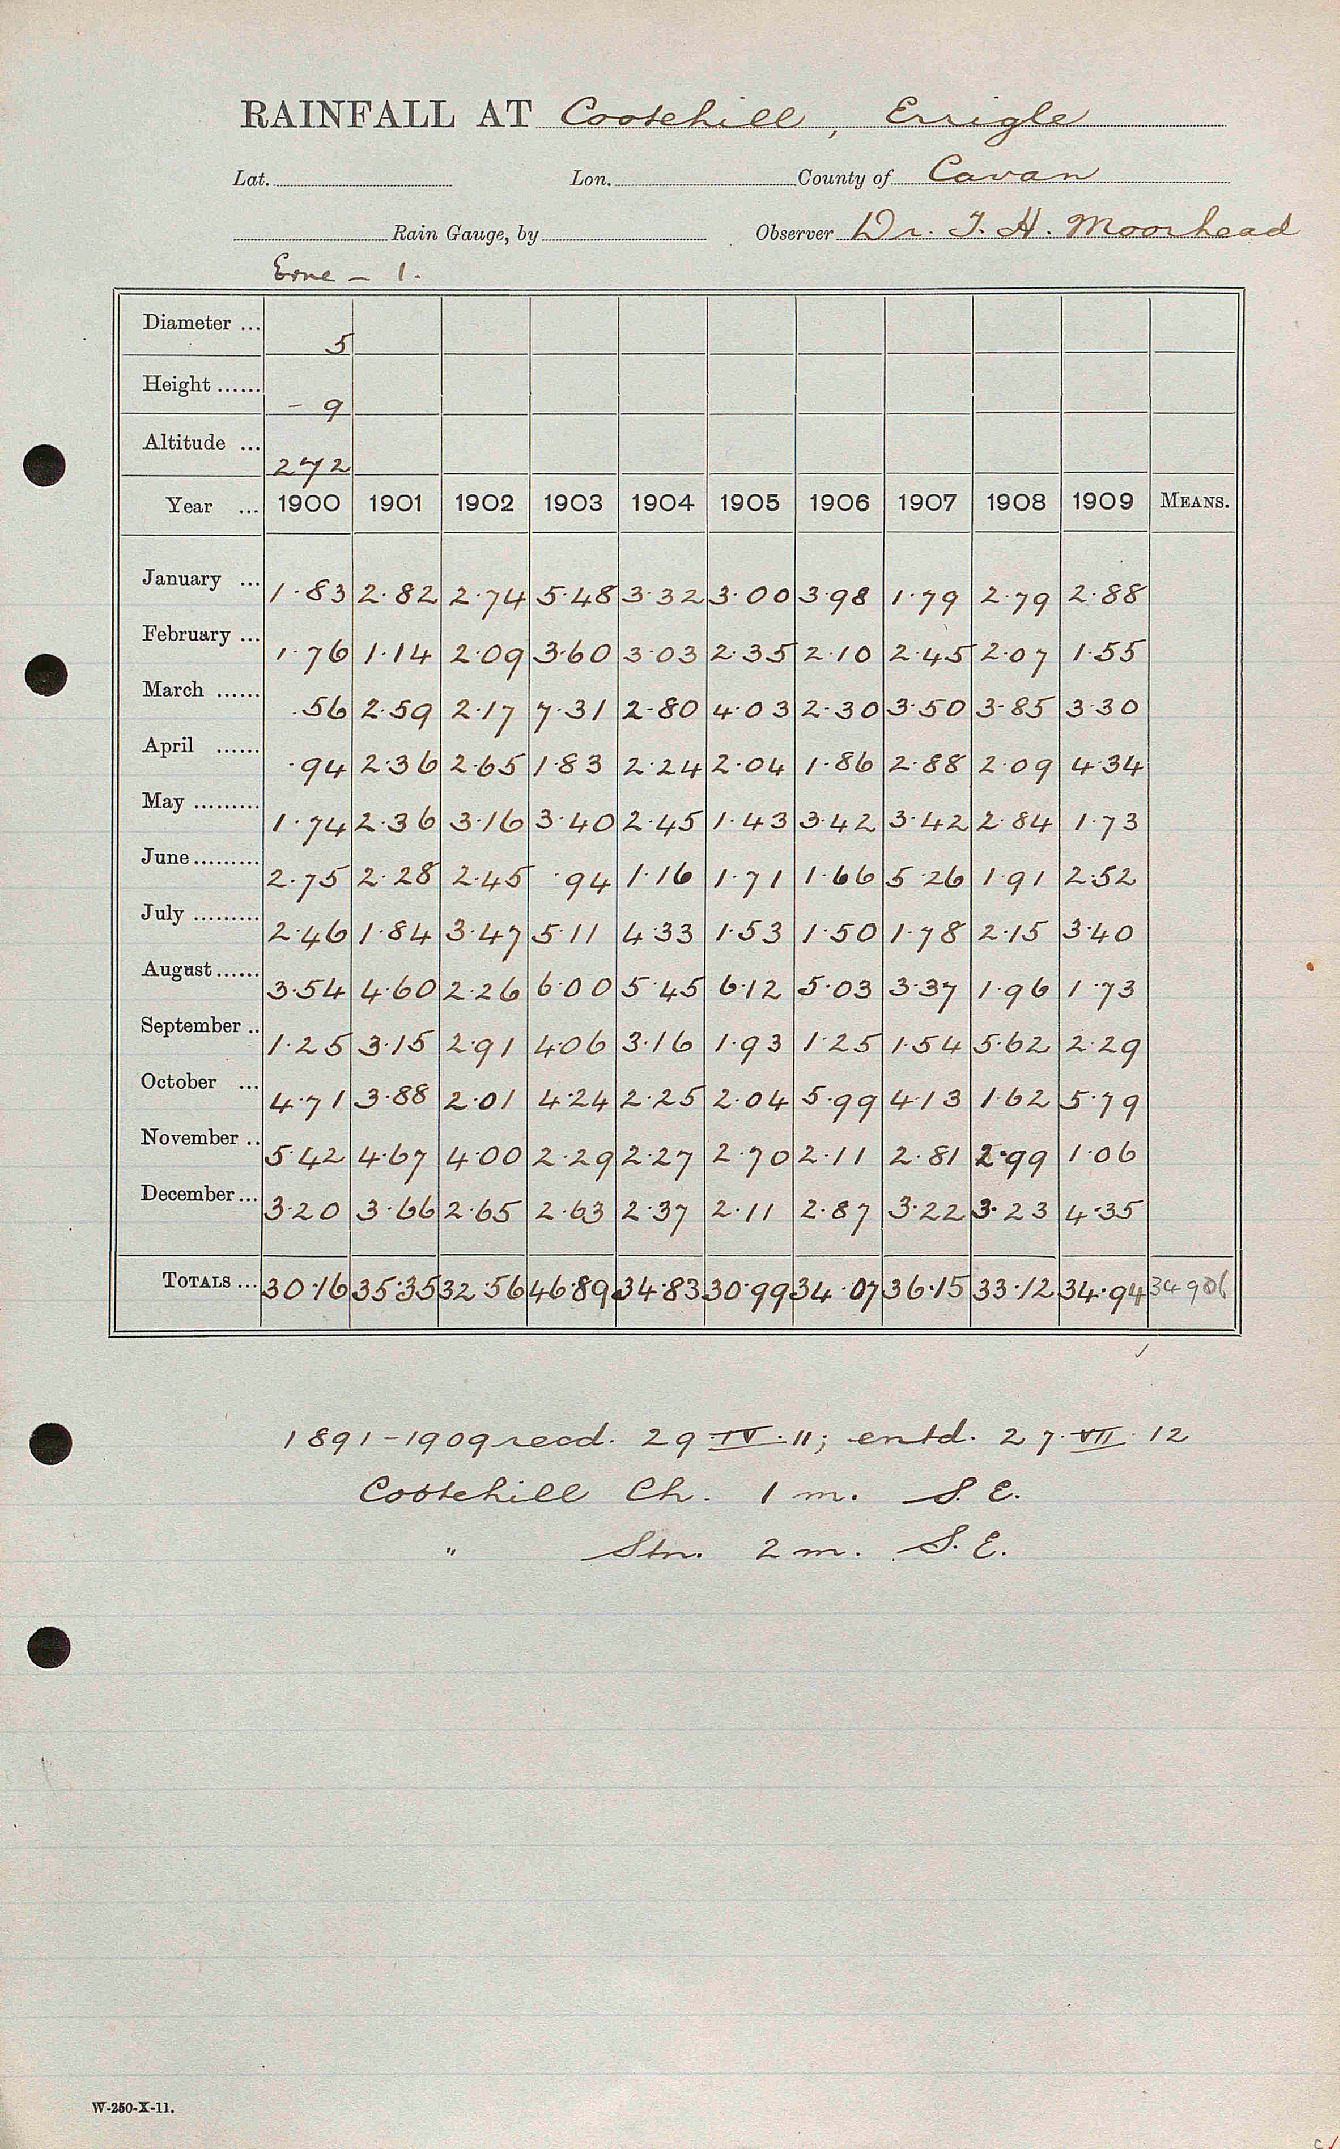 RAINFALL AT Cootehill, Errigle
Lat. Lon. County of Cavan
Rain Gauge, by Observer Dr. T. H. Moorhead
Erne - 1.
Diameter ... 5
Height ...... - 9
Altitude ... 272
Year ... 1900 1901 1902 1903 1904 1905 1906 1907 1908 1909 MEANS.
January ... 1.83 2.82 2.74 5.48 3.32 3.00 3.98 1.79 2.79 2.88
February ... 1.76 1.14 2.09 3.60 3.03 2.35 2.10 2.45 2.07 1.55
March ...... .56 2.59 2.17 7.31 2.80 4.03 2.30 3.50 3.85 3.30
April ...... .94 2.36 2.65 1.83 2.24 2.04 1.86 2.88 2.09 4.34
May ......... 1.74 2.36 3.16 3.40 2.45 1.43 3.42 3.42 2.84 1.73
June ......... 2.75 2.28 2.45 .94 1.16 1.71 1.66 5.26 1.91 2.52
July ......... 2.46 1.84 3.47 5.11 4.33 1.53 1.50 1.78 2.15 3.40
August ...... 3.54 4.60 2.26 6.00 5.45 6.12 5.03 3.37 1.96 1.73
September .. 1.25 3.15 2.91 4.06 3.16 1.93 1.25 1.54 5.62 2.29
October ... 4.71 3.88 2.01 4.24 2.25 2.04 5.99 4.13 1.62 5.79
November .. 5.42 4.67 4.00 2.29 2.27 2.70 2.11 2.81 2.99 1.06
December ... 3.20 3.66 2.65 2.63 2.37 2.11 2.87 3.22 3.23 4.35
TOTALS ... 30.16 35.35 32.56 46.89 34.83 30.99 34.07 36.15 33.12 34.94 34906
1891-1909 recd. 29 IV. 11; entd. 27. VII. 12
Cootehill Ch. 1 m. S.E.
" Stn. 2 m. S.E.
W-250-X-11.